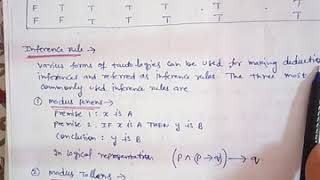 F T T T T T
F F T T T T
Inference rule →
Various forms of tautologies can be used for making deduction
inferences and referred as inference rules. The three most
commonly used inference rules are
① Modus Ponens
premise 1 : x is A
premise 2 : IF x is A THEN y is B
conclusion : y is B
In logical representation (P ∧ (P → q)) → q
② Modus Tollens →